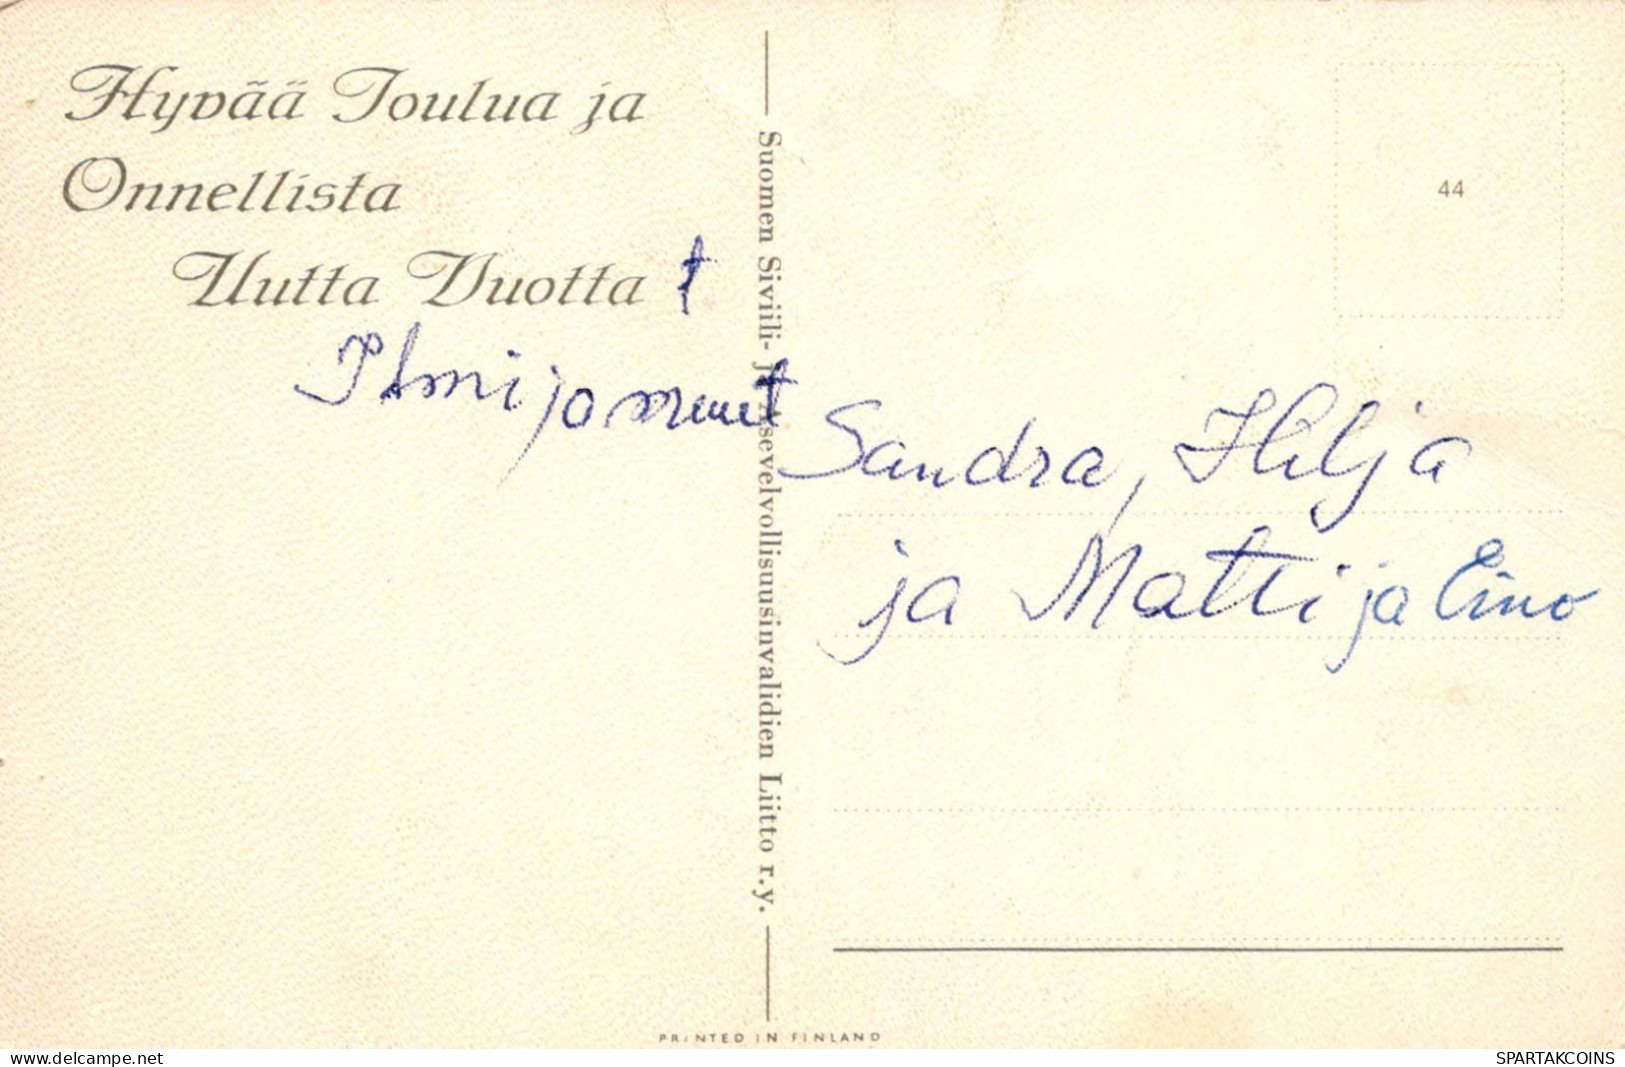 Hyvää Joulua ja
Onnellista
Uutta Vuotta
t
Ilmi ja muut
Suomen Siviili- ja Asevelvollisuusinvalidien Liitto r.y.
44
Sandra, Hilja
ja Matti ja Eino
PRINTED IN FINLAND
https://www.delcampe.net
SPARTAKCOINS